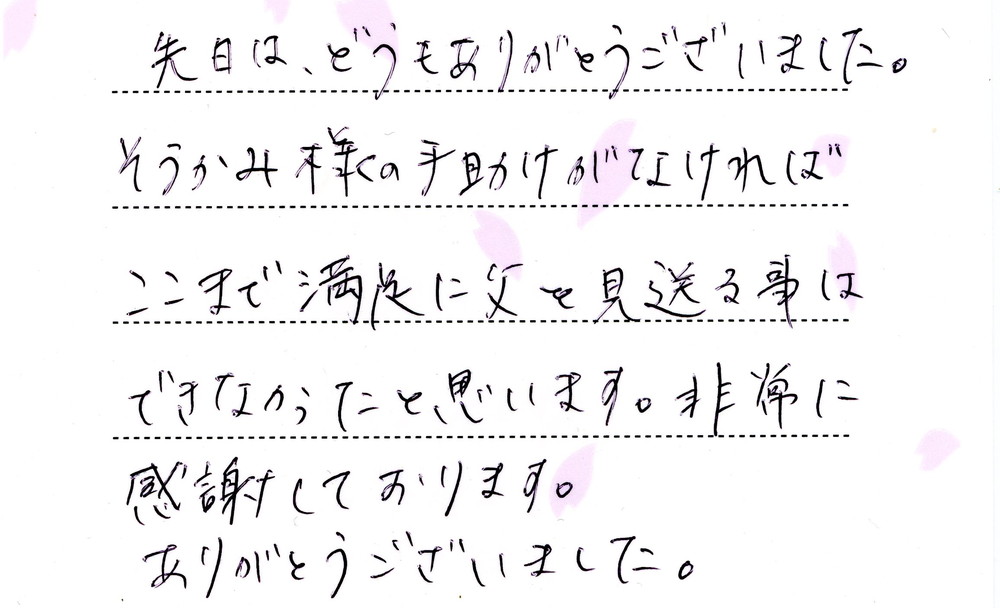 先日は、どうもありがとうございました。
そうかみ様の手助けがなければ
ここまで満足に父を見送る事は
できなかったと思います。非常に
感謝しております。
ありがとうございました。